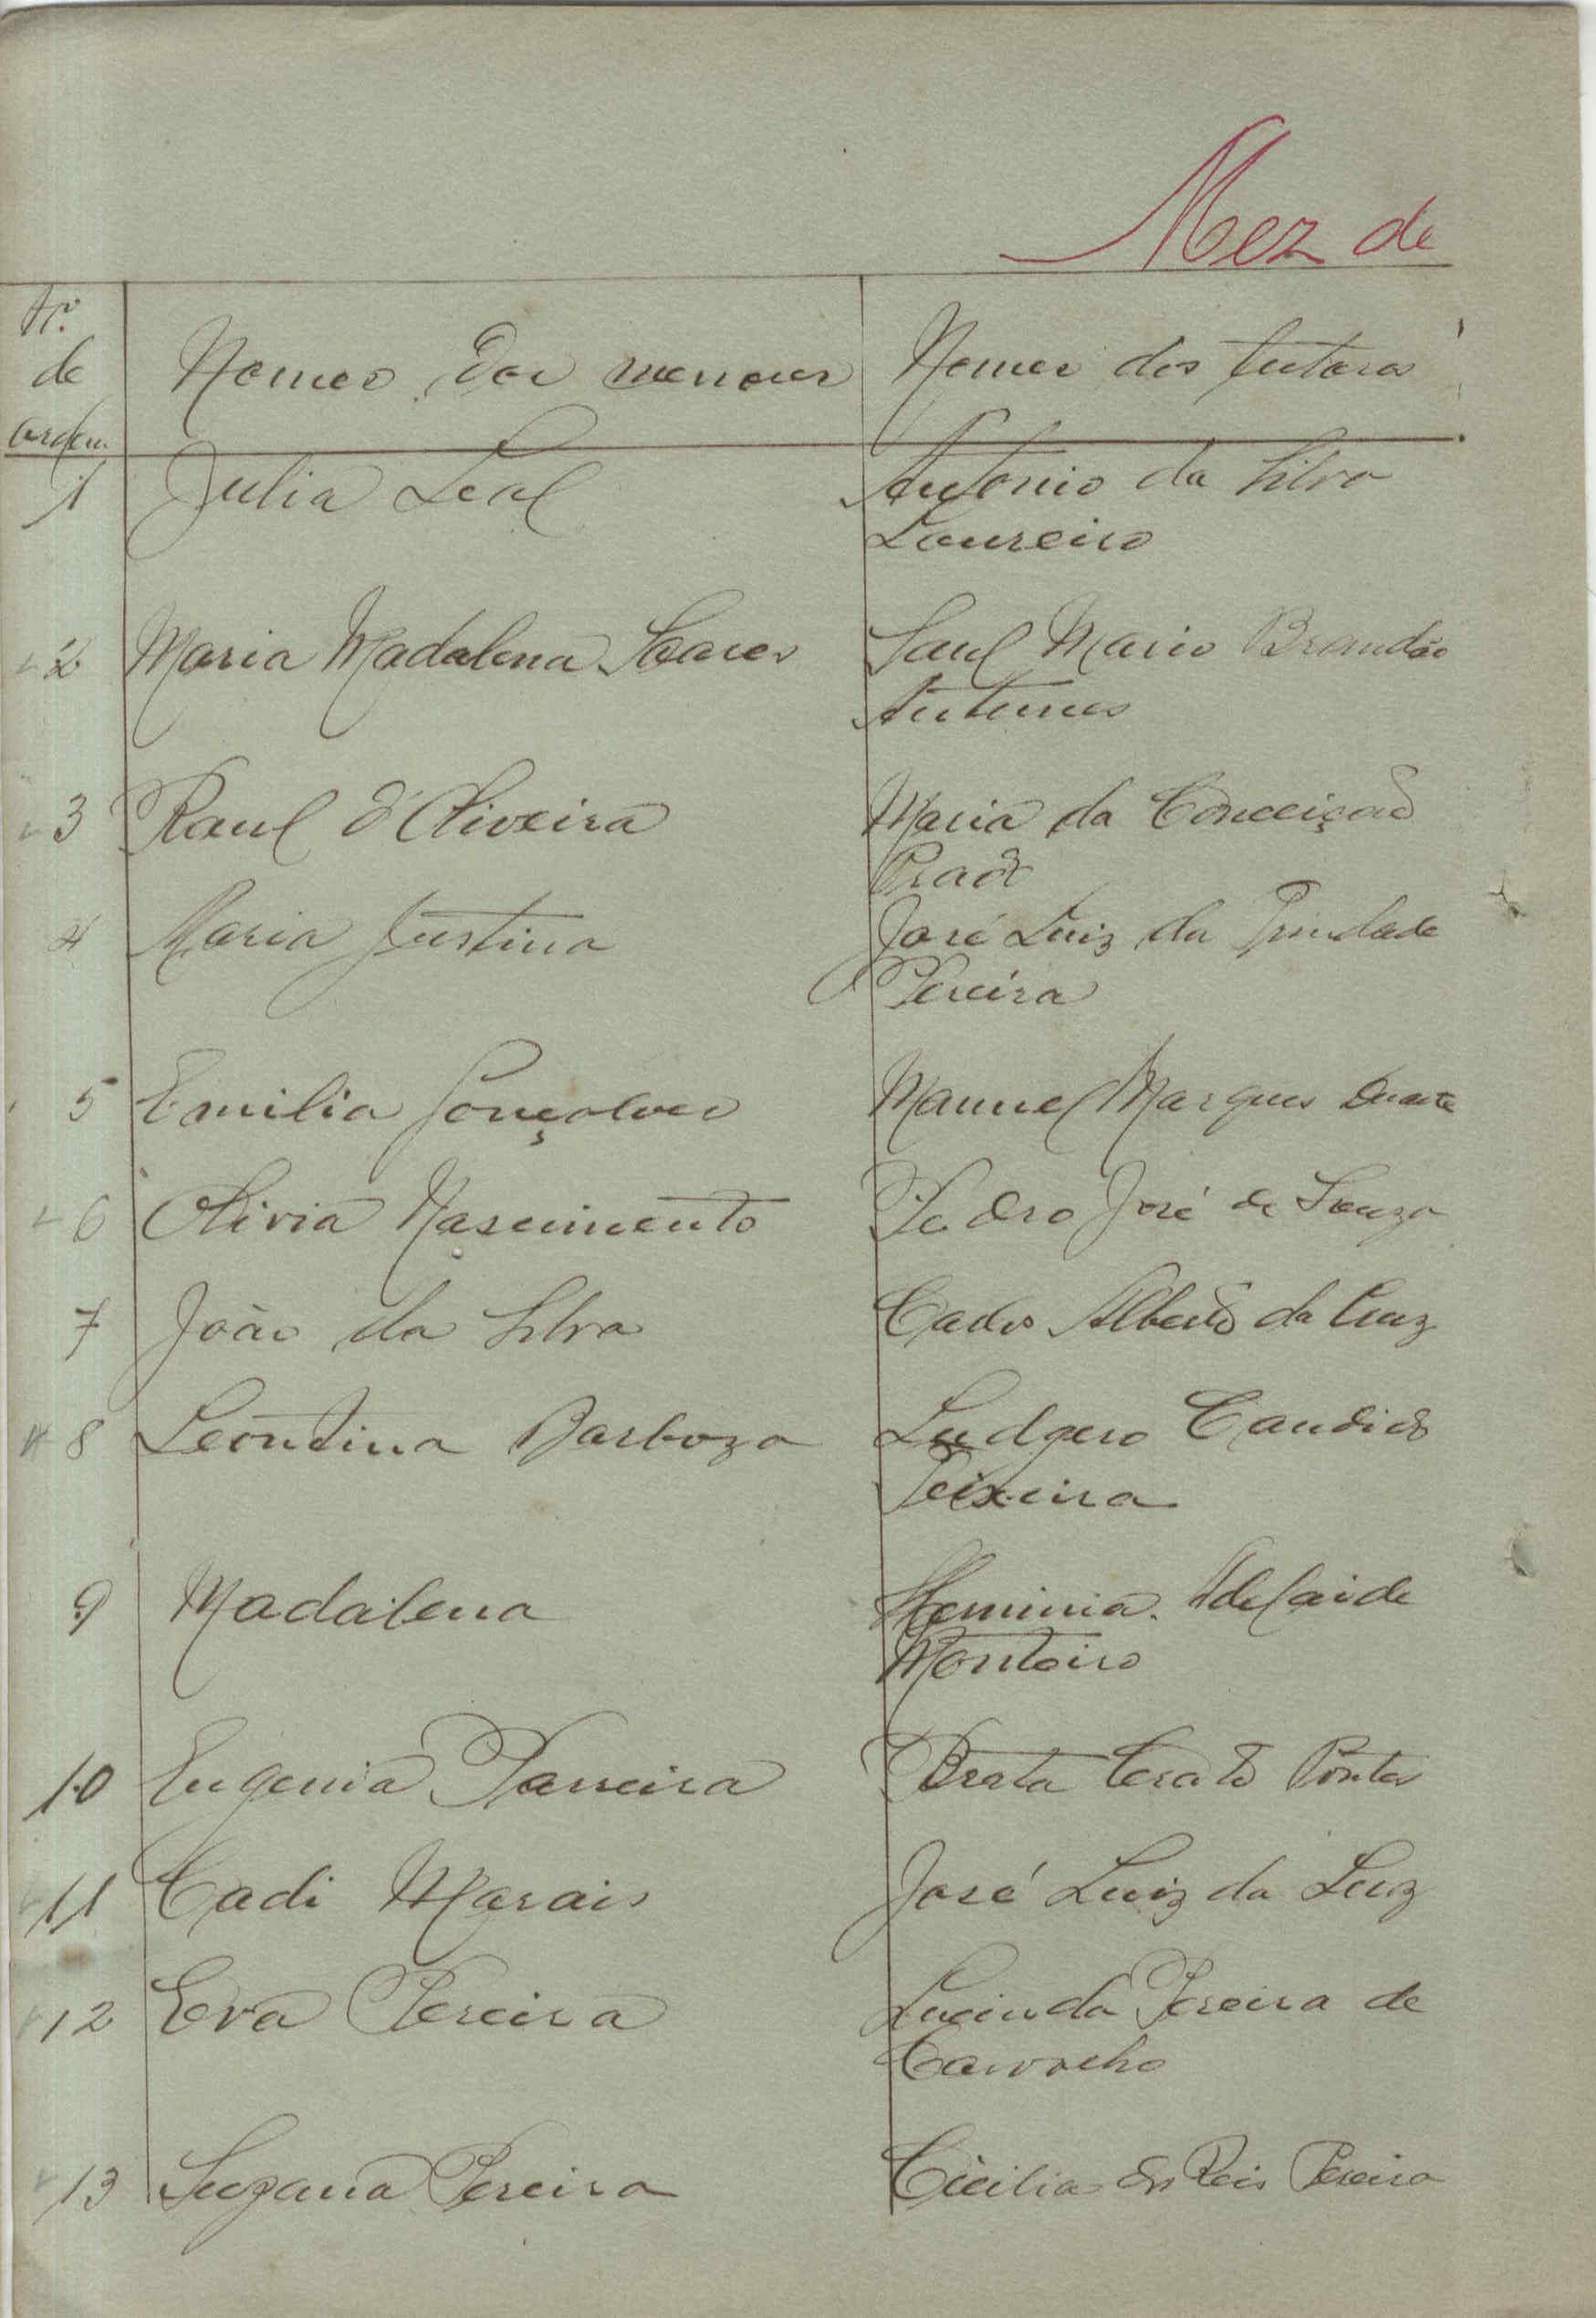 Mez de
Nº
de
ordem
Nomes dos menores
Nomes dos tutores
1 Julia Leal Antonio da Silva
Loureiro
2 Maria Madalena Soares Saul Mario Brandão
Antunes
3 Raul d'Oliveira Maria da Conceição
Prado
4 Maria Justina José Luiz da Trindade
Pereira
5 Emilia Gonçalves Manuel Marques Duarte
6 Olivia Nascimento Pedro José de Souza
7 João da Silva Carlos Alberto da Cruz
8 Leontina Barboza Ludgero Candido
Teixeira
9 Madalena Herminia Adelaide
Monteiro
10 Eugenia Parreira Pontes
11 Cadi Morais José Luiz da Luz
12 Eva Pereira Lucinda Pereira de
Carvalho
13 Suzana Pereira Cicilia dos Reis Pereira